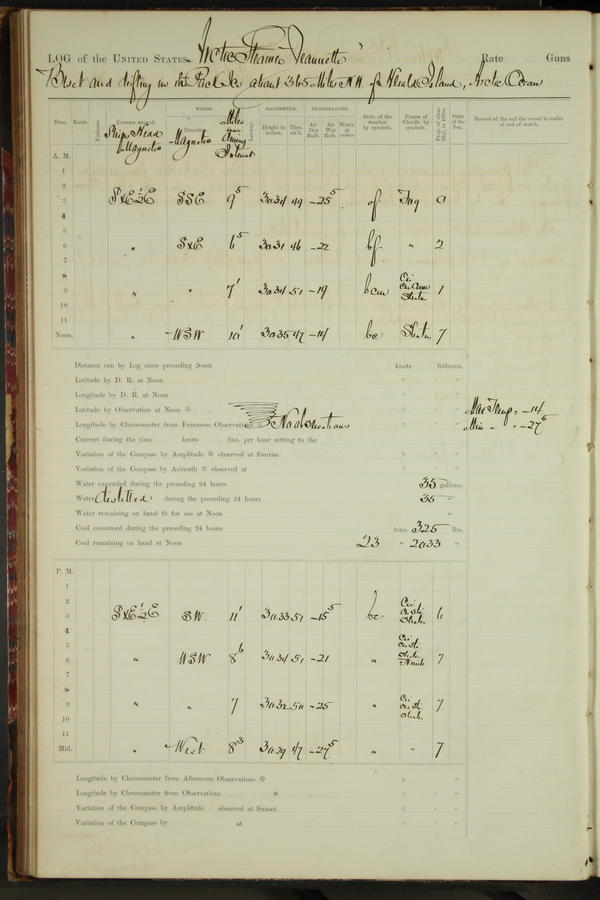 LOG of the UNITED STATES Arctic Steamer Jeannette Rate Guns
Beset and drifting in the Pack Ice, about 365 Miles N.W. of Herald Island, Arctic Ocean
WINDS. BAROMETER. TEMPERATURE.
Hour. Knots. Fathoms. Courses steered. Direction Height in inches. Ther. att'd. Air Dry Bulb. Air Wet Bulb. Water at surface. State of the weather by symbols. Forms of Clouds by symbols. Prop. of clear Sky, in 10ths. State of the Sea. Record of the sail the vessel is under at end of watch.
Ship's Head Magnetic Magnetic Miles During Interval
A. M.
1
2
3 SxE½E SSE 9⁵ 30.34 49 -25⁵ of Fog 0
4
5
6 " SxE 6⁵ 30.31 46 -22 bf " 2
7
8
9 " " 7¹ 30.34 51 -19 bcm Ci Str 1
10
11
Noon. " WSW 10¹ 30.35 47 -14 bc Strat. 7
Distance run by Log since preceding Noon knots fathoms.
Latitude by D. R. at Noon ° ′ ″
Longitude by D. R. at Noon ° ′ ″
Latitude by Observation at Noon ☉ ° ′ ″ Max Temp. = -14
Longitude by Chronometer from Forenoon Observations No Observations ° ′ ″ Min " = -27⁵
Current during the time knots fms. per hour setting to the
Variation of the Compass by Amplitude ☉ observed at Sunrise ° ′ ″
Variation of the Compass by Azimuth ☉ observed at ° ′ ″
Water expended during the preceding 24 hours 35 gallons.
Water distilled during the preceding 24 hours 35 "
Water remaining on hand fit for use at Noon "
Coal consumed during the preceding 24 hours tons. 325 lbs.
Coal remaining on hand at Noon 23 " 2033 "
P. M.
1
2
3 SxE½E SW. 11¹ 30.33 51 -15⁵ bc. Ci Ci. St. Strat. 6
4
5
6 " WSW 8⁶ 30.34 51 -21 " Ci Ci. St. Strat. 7
7
8
9 " " 7 30.32 50 -25 " Ci Ci. St. Strat. 7
10
11
Mid. " West 8³ 30.29 47 -27⁵ " " 7
Longitude by Chronometer from Afternoon Observations ☉ ° ″
Longitude by Chronometer from Observations * ° ′ ″
Variation of the Compass by Amplitude observed at Sunset ° ′ ″
Variation of the Compass by at ° ′ ″